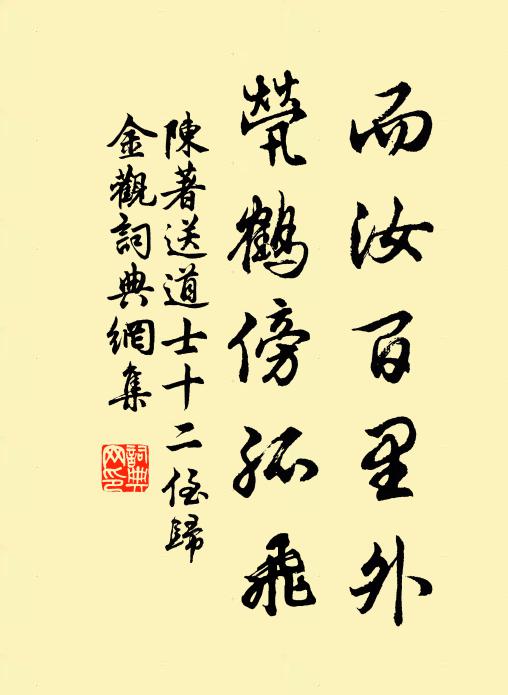 而汝百里外
煢鶴傍孤飛
陳著送道士十二侄歸
金觀詞典網集
詞典
网印